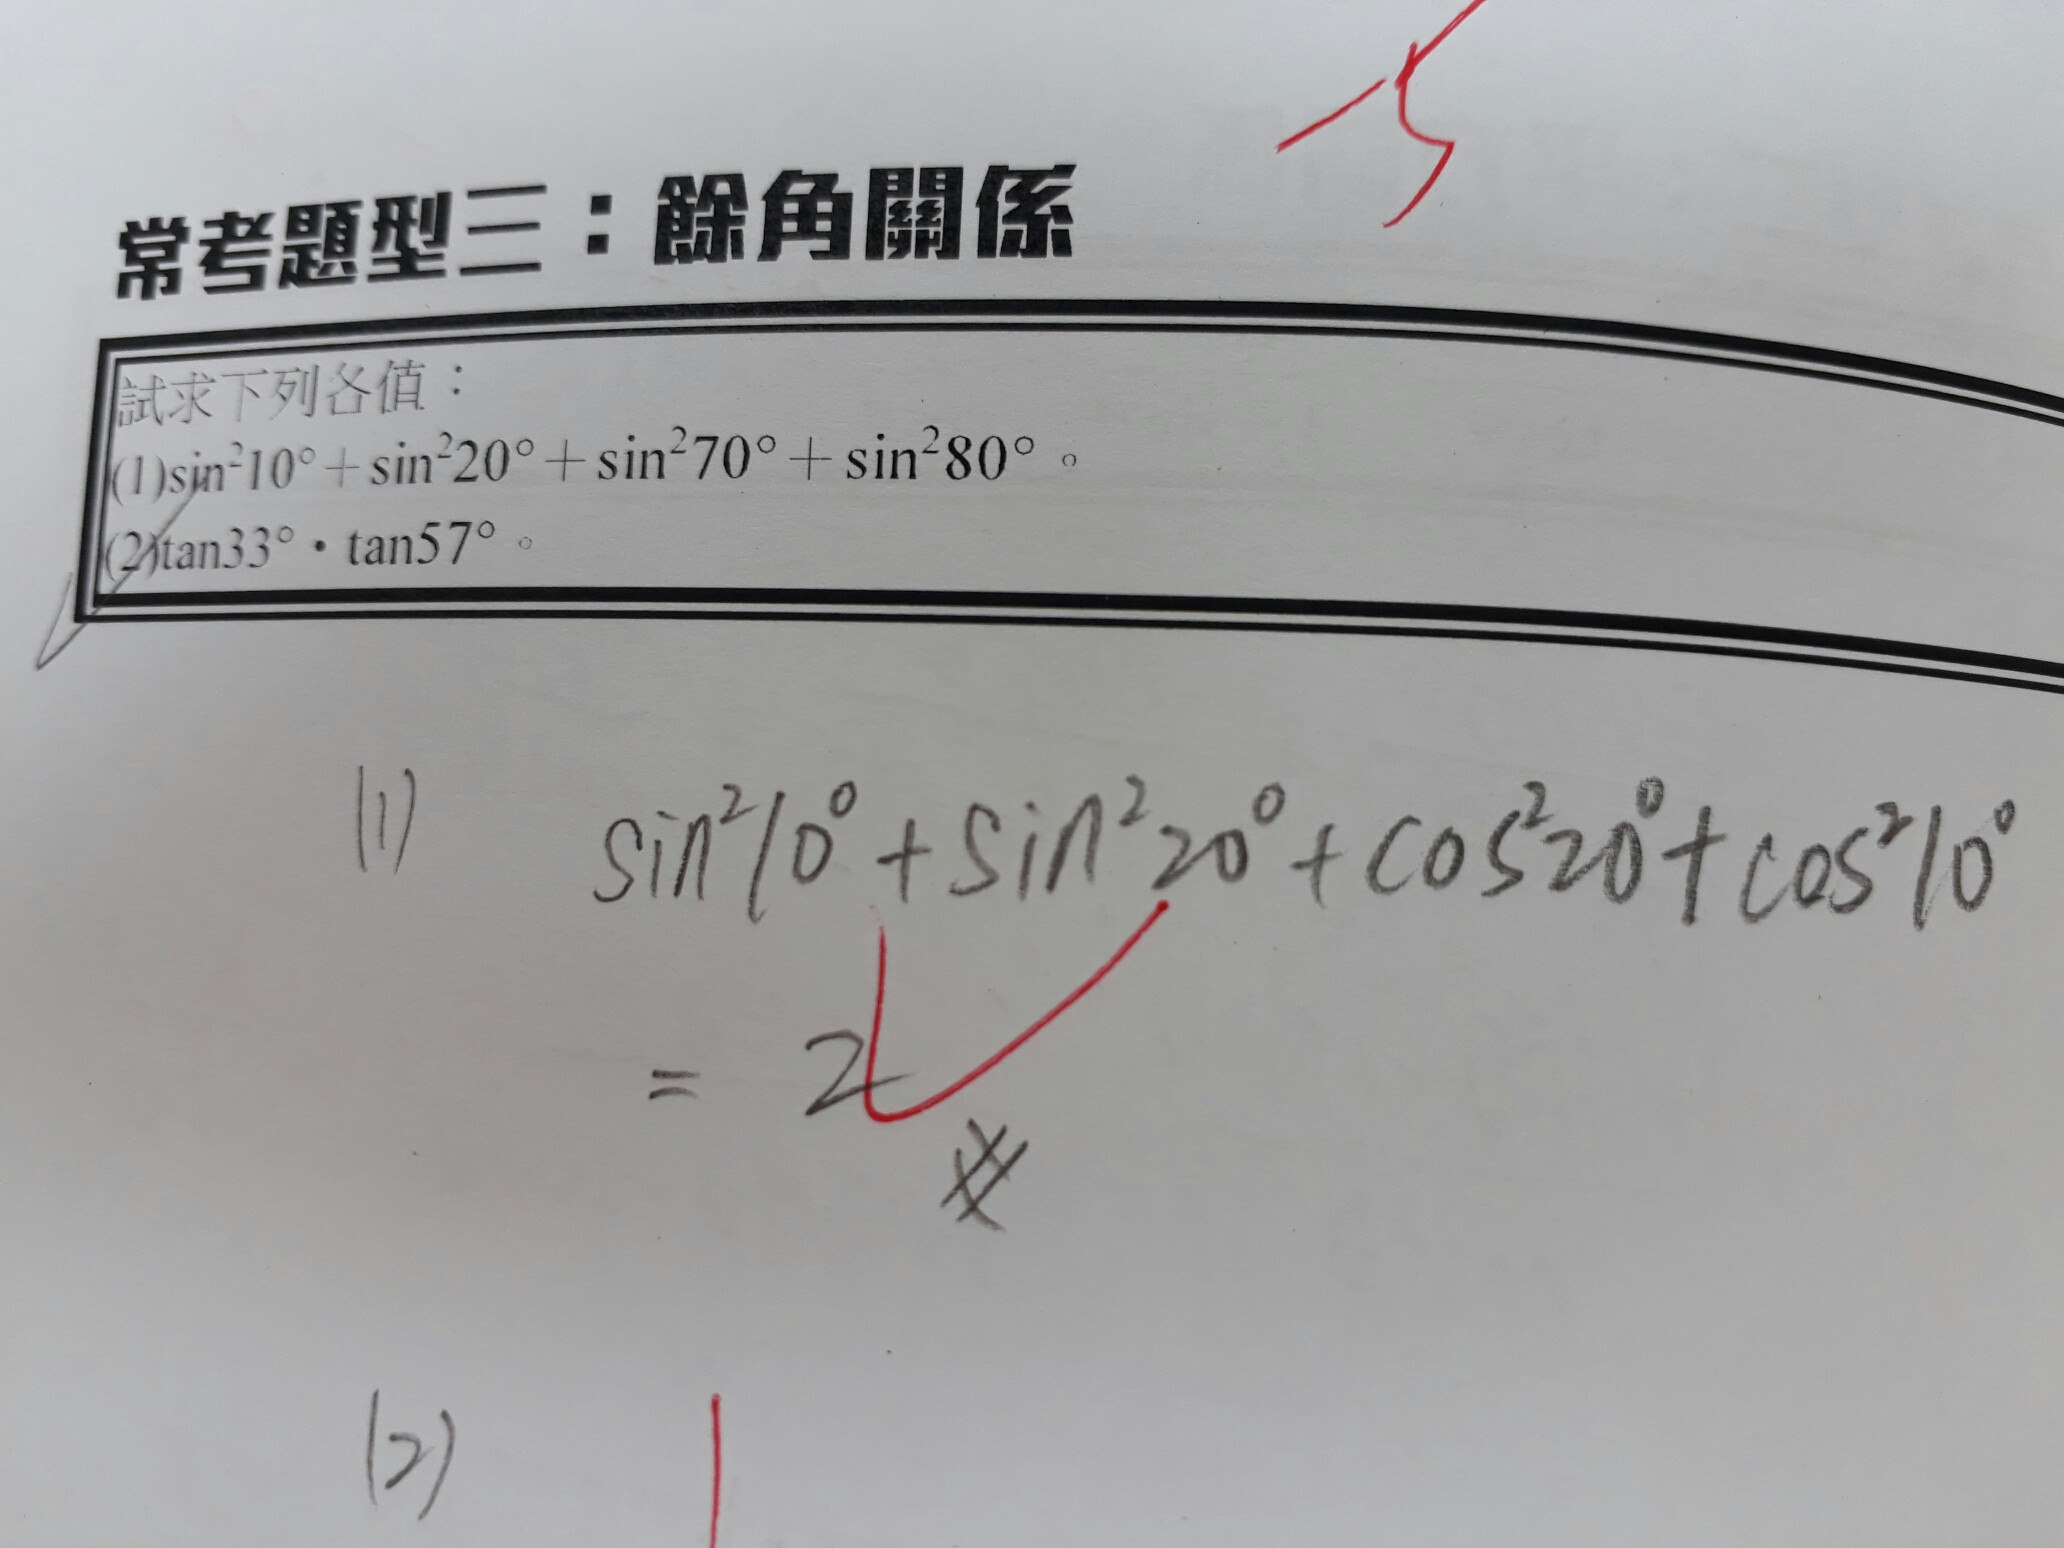 常考題型三：餘角關係
試求下列各值：
(1)sin²10°＋sin²20°＋sin²70°＋sin²80°。
(2)tan33°・tan57°。
(1) sin²10°+sin²20°+cos²20°+cos²10°
= 2 #
(2)